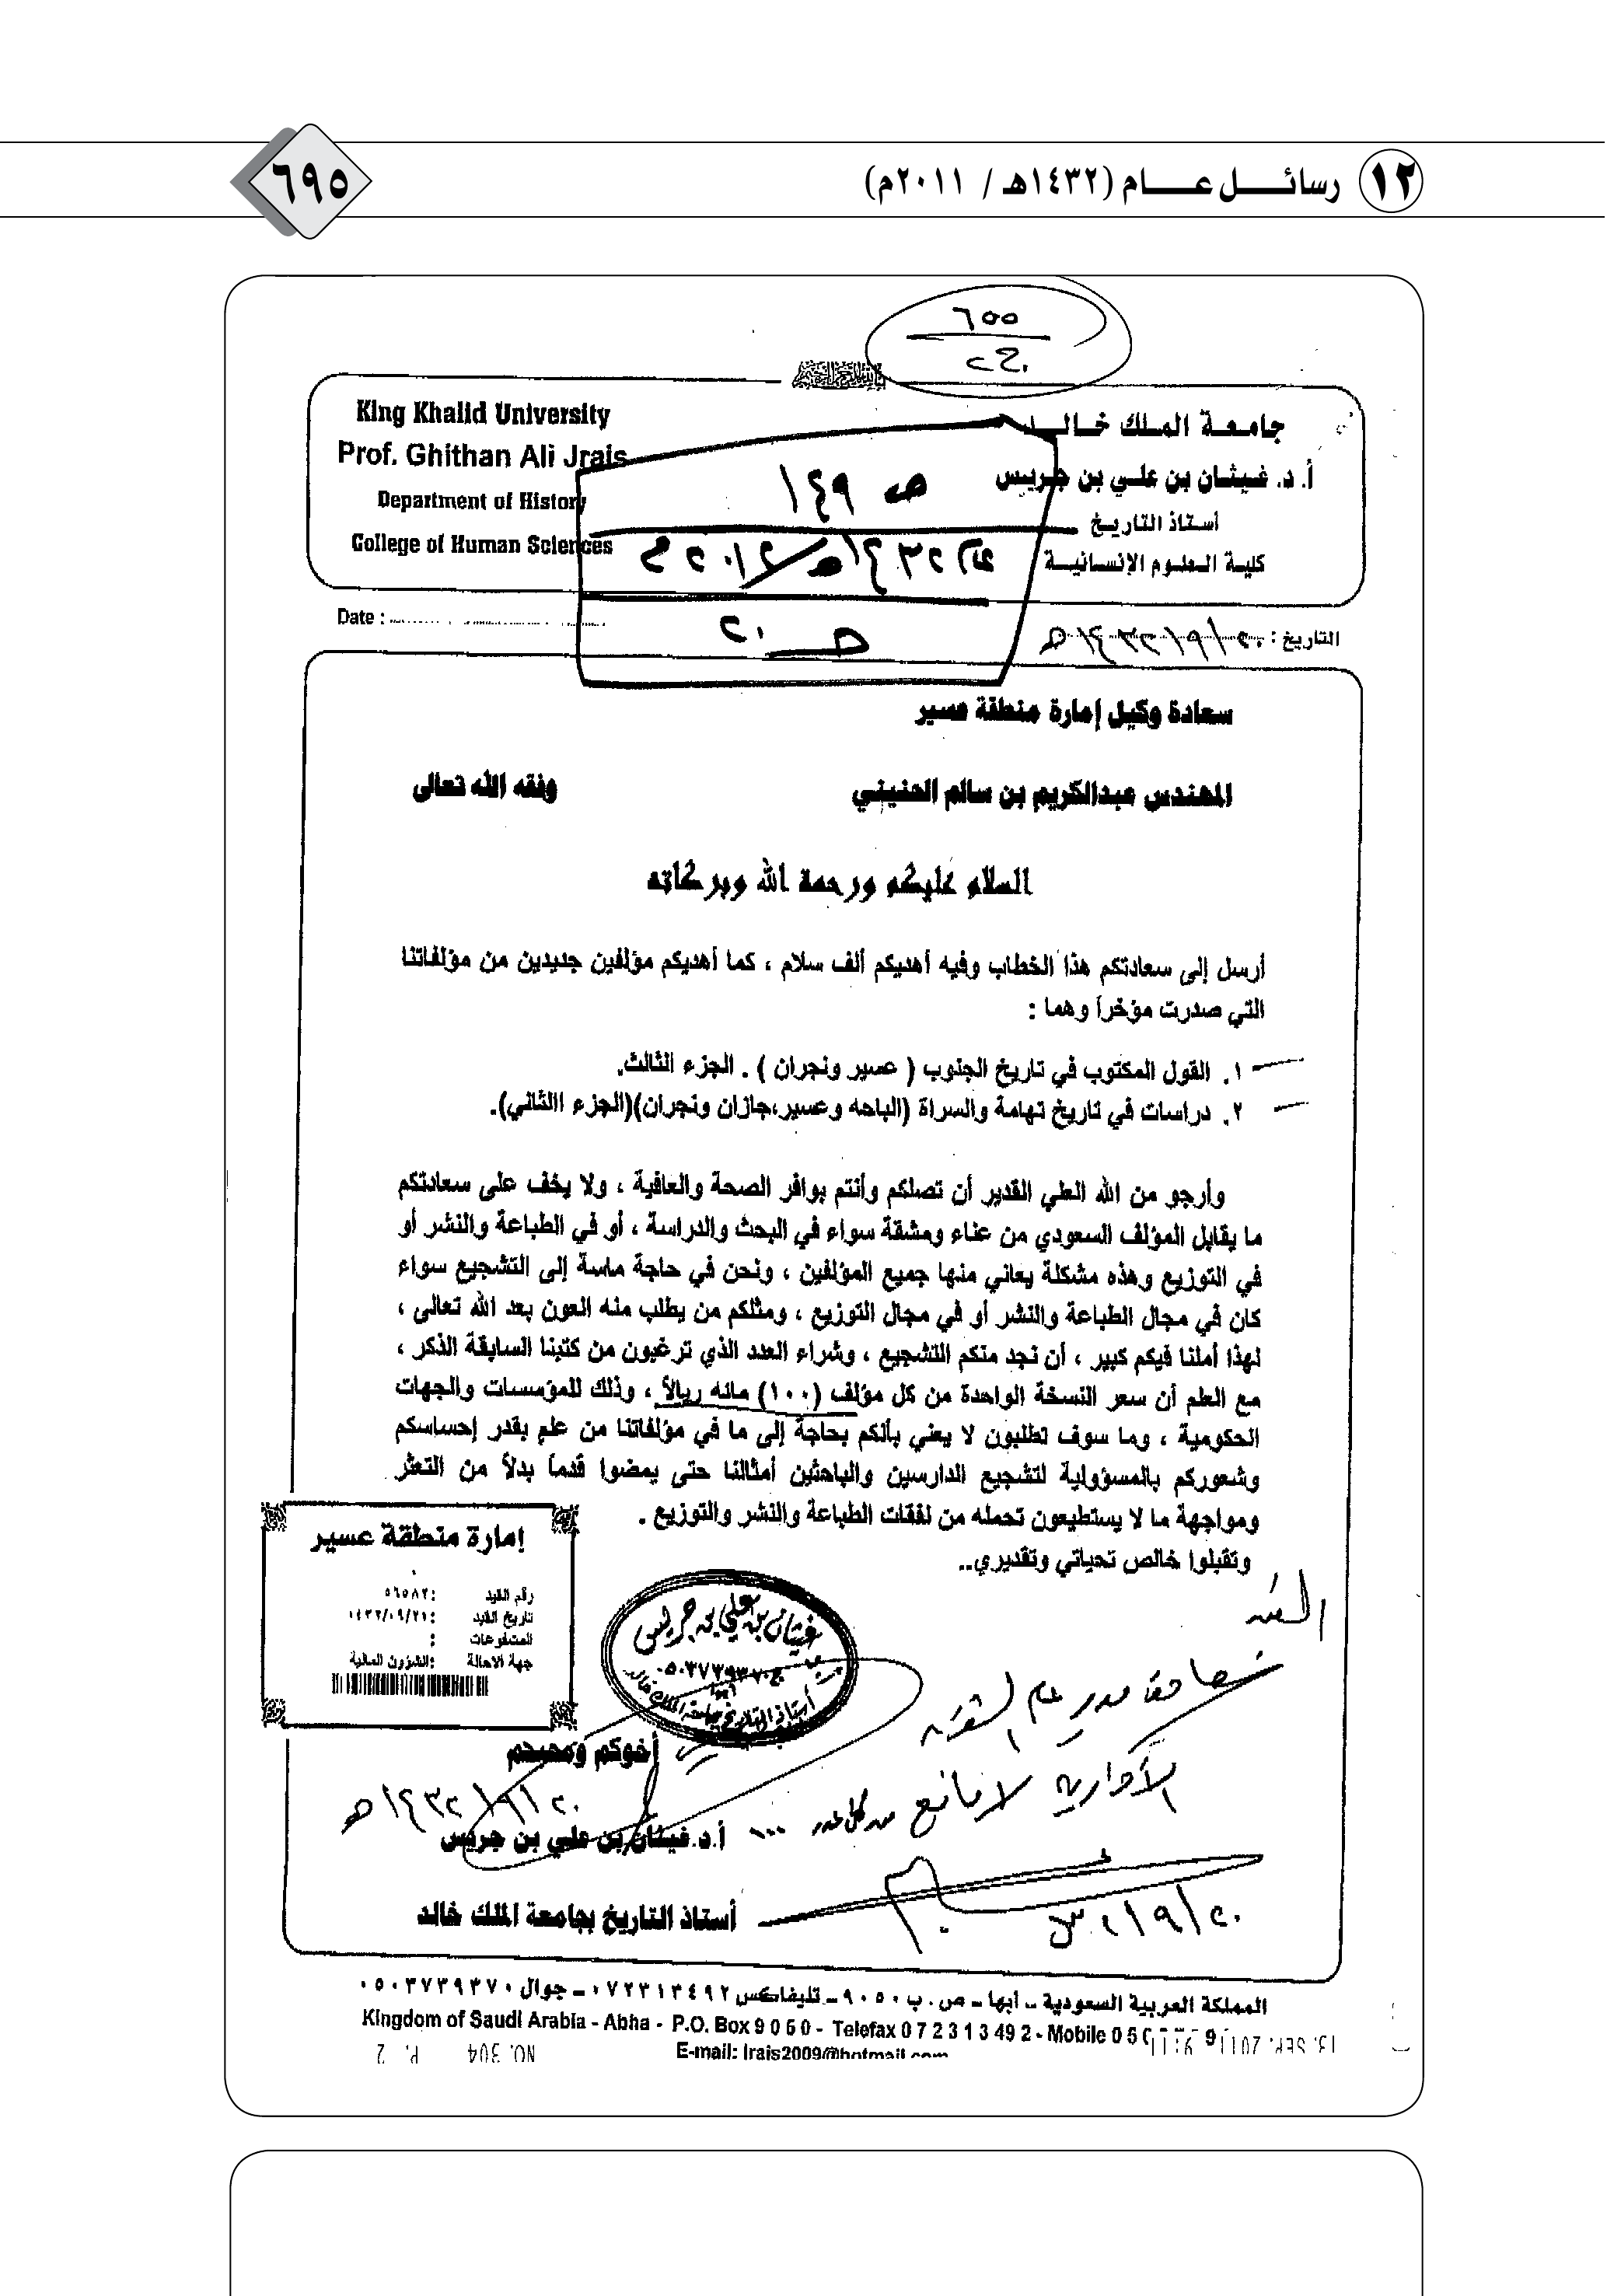 ١٢ رسائــل عـــام (١٤٣٢هـ / ٢٠١١م)
٦٩٥
٦٥٥
جامـعـة الملك خـالـد
أ. د. غـيـثـان بن علـي بن جريـس
أسـتـاذ التاريـخ
كليـة الـعلـوم الإنـسـانيـة
King Khalid University
Prof. Ghithan Ali Jrais
Department of History
College of Human Sciences
ص ١٤٩
التاريخ : ٢٠/٩/١٤٣٢هـ
Date :
سعادة وكيل إمارة منطقة عسير
المهندس عبدالكريم بن سالم الحنيني وفقه الله تعالى
السلام عليكم ورحمة الله وبركاته
أرسل إلى سعادتكم هذا الخطاب وفيه أهديكم ألف سلام ، كما أهديكم مؤلفين جديدين من مؤلفاتنا
التي صدرت مؤخراً وهما :
١. القول المكتوب في تاريخ الجنوب ( عسير ونجران ) . الجزء الثالث.
٢. دراسات في تاريخ تهامة والسراة (الباحه وعسير،جازان ونجران)(الجزء االثاني).
وأرجو من الله العلي القدير أن تصلكم وأنتم بوافر الصحة والعافية ، ولا يخف على سعادتكم
ما يقابل المؤلف السعودي من عناء ومشقة سواء في البحث والدراسة ، أو في الطباعة والنشر أو
في التوزيع وهذه مشكلة يعاني منها جميع المؤلفين ، ونحن في حاجة ماسة إلى التشجيع سواء
كان في مجال الطباعة والنشر أو في مجال التوزيع ، ومثلكم من يطلب منه العون بعد الله تعالى ،
لهذا أملنا فيكم كبير ، أن نجد منكم التشجيع ، وشراء العدد الذي ترغبون من كتبنا السابقة الذكر ،
مع العلم أن سعر النسخة الواحدة من كل مؤلف (١٠٠) مائه ريالاً ، وذلك للمؤسسات والجهات
الحكومية ، وما سوف تطلبون لا يعني بأنكم بحاجة إلى ما في مؤلفاتنا من علم بقدر إحساسكم
وشعوركم بالمسؤولية لتشجيع الدارسين والباحثين أمثالنا حتى يمضوا قدماً بدلاً من التعثر
ومواجهة ما لا يستطيعون تحمله من نفقات الطباعة والنشر والتوزيع .
وتقبلوا خالص تحياتي وتقديري..
إمارة منطقة عسير
رقم القيد :٥٦٥٨٢
تاريخ القيد
المشفوعات :
جهة الاحالة :الشؤون المالية
غيثان بن علي بن جريس
٠٥٠٣٧٣٩٣٧٠
أستاذ التاريخ بجامعة الملك خالد
أخوكم ومحبكم
٢٠/٩/١٤٣٢هـ
أ.د.غيثان بن علي بن جريس
أستاذ التاريخ بجامعة الملك خالد
الأدارية لا مانع
المملكة العربية السعودية – أبها – ص . ب ٩٠٥٠ – تليفاكس ٠٧٢٣١٣٤٩٢ – جوال ٠٥٠٣٧٣٩٣٧٠
Kingdom of Saudi Arabia - Abha - P.O. Box 9 0 5 0 - Telefax 0 7 2 3 1 3 49 2 - Mobile 0 5 0
E-mail: Jrais2009@hotmail.com
13. SEP. 2011 9:11 NO. 304 P. 2